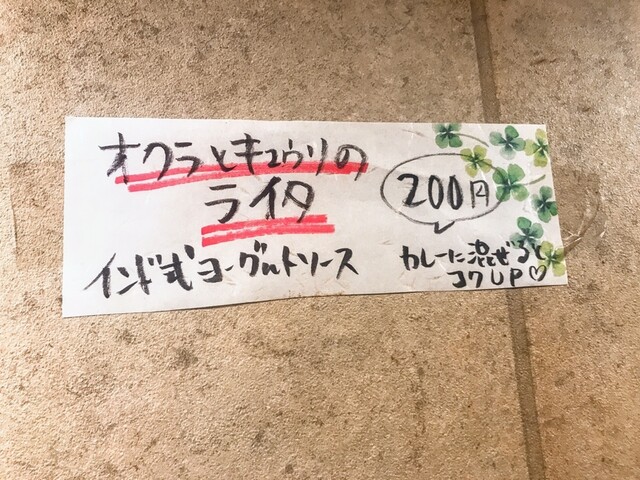 オクラとキュウリの
ライタ
200円
インド式ヨーグルトソース
カレーに混ぜると
コクUP♡